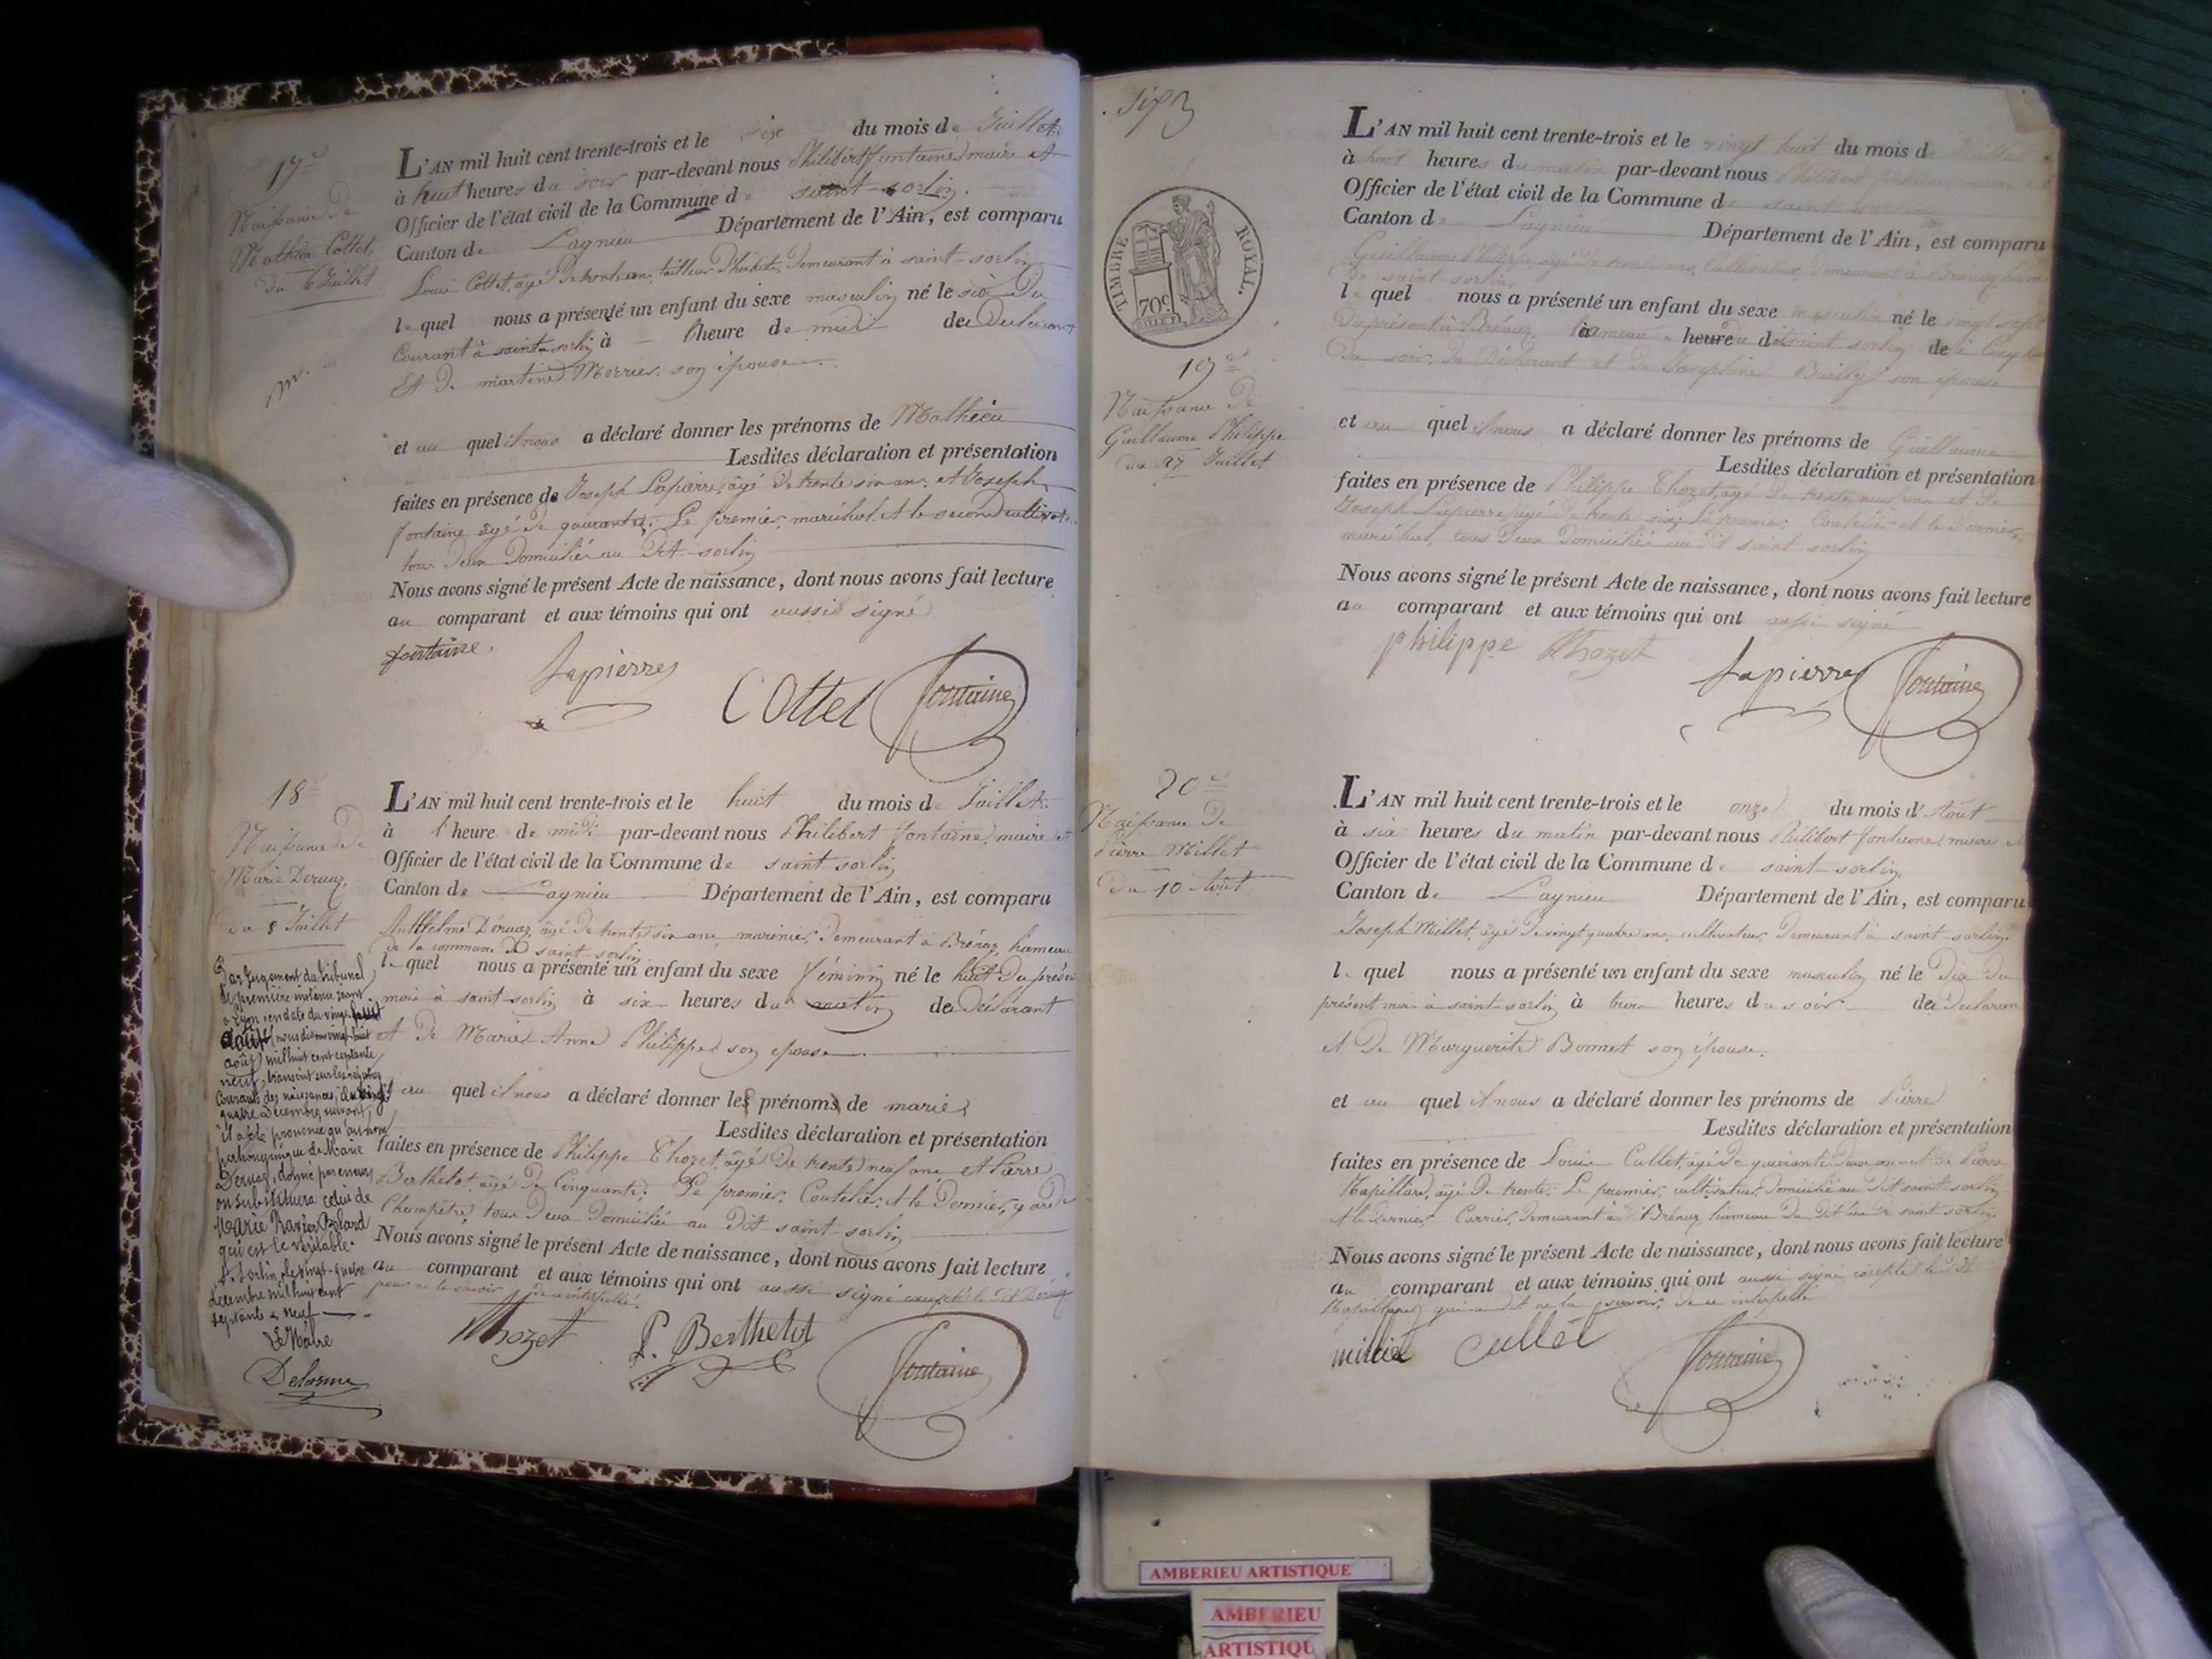 17e
Naissance de
Mathieu Cottet,
du 6 Juillet
L'AN mil huit cent trente-trois et le six du mois de Juillet
à huit heures du soir par-devant nous Philibert fontaine maire et
Officier de l'état civil de la Commune de saint-sorlin.
Canton de Lagnieu Département de l'Ain, est comparu
Louis Cottet, âgé de trente ans, tailleur d'habits, demeurant à saint-sorlin
lequel nous a présenté un enfant du sexe masculin né le six du
Courant à saint-sorlin à l'heure de midi de Déclarant
Et De martine son épouse.
et au quel il nous a déclaré donner les prénoms de Mathieu
Lesdites déclaration et présentation
faites en présence de Joseph Lapierre, âgé de trente six ans, et Joseph
fontaine âgé de quarante. Le premier maréchal et le second cultivateur
tous deux Domiciliés au Dit-sorlin
Nous avons signé le présent Acte de naissance, dont nous avons fait lecture
au comparant et aux témoins qui ont aussi signé
fontaine. Lapierre Cottet fontaine
18e
Naissance de
Marie Deruaz,
du 8 Juillet
L'AN mil huit cent trente-trois et le huit du mois de Juillet
à l'heure de midi par-devant nous Philibert fontaine, maire et
Officier de l'état civil de la Commune de saint sorlin
Canton de Lagnieu Département de l'Ain, est comparu
Anthelme Déruaz, âgé de trente six ans, marinier, demeurant à Brénaz, hameau
de la commune de saint-sorlin
lequel nous a présenté un enfant du sexe féminin né le huit du présent
mois à saint-sorlin à six heures du matin de Déclarant
et de Marie Anne Philippe son épouse.
et au quel il nous a déclaré donner les prénoms de marie
Lesdites déclaration et présentation
faites en présence de Philippe Thozet, âgé de trente neuf ans et Pierre
Berthelot, âgé de Cinquante. Le premier, Coutelier, et le Dernier, garde
Champêtre, tous Deux Domiciliés au Dit saint-sorlin
Nous avons signé le présent Acte de naissance, dont nous avons fait lecture
au comparant et aux témoins qui ont aussi signé excepté le dit Déruaz
pour ne le savoir de ce interpellé.
Thozet P. Berthelot fontaine
Par Jugement du tribunal
de première instance séant
à Lyon en date du vingt huit
août (nous disons vingt-huit
août) mil huit cent septante
neuf, transcrit sur les registres
courants des naissances, du vingt
quatre décembre suivant,
il a été prononcé qu'au nom
patronymique de Marie
Deruaz, donné par erreur,
on substituera celui de
Marie Ravier Bolard
qui est le véritable.
St. Sorlin, le vingt-quatre
décembre mil huit cent
septante & neuf
Le Maire
Delorme
TIMBRE ROYAL.
70c
19e
Naissance de
Guillaume Philippe
du 27 Juillet
L'AN mil huit cent trente-trois et le vingt huit du mois de Juillet
à huit heures du matin par-devant nous Philibert fontaine maire et
Officier de l'état civil de la Commune de saint sorlin
Canton de Lagnieu Département de l'Ain, est comparu
Guillaume Philippe âgé de trente ans, Cultivateur, demeurant à Brénaz, hameau
de saint-sorlin
lequel nous a présenté un enfant du sexe masculin né le vingt sept
du présent à Brénaz hameau heure du dit saint-sorlin de à cinq heures
du soir, de Déclarant et de Josephine Bailly son épouse
et au quel il nous a déclaré donner les prénoms de Guillaume
Lesdites déclaration et présentation
faites en présence de Philippe Thozet, âgé de trente neuf ans et de
Joseph Lapierre, âgé de trente six; Le premier, Coutelier et le Dernier,
maréchal, tous Deux Domiciliés au Dit saint sorlin
Nous avons signé le présent Acte de naissance, dont nous avons fait lecture
au comparant et aux témoins qui ont aussi signé
philippe Thozet Lapierre fontaine
20e
Naissance de
Pierre Millet
du 10 Août
L'AN mil huit cent trente-trois et le onze du mois d'Août
à six heures du matin par-devant nous Philibert fontaine, maire et
Officier de l'état civil de la Commune de saint-sorlin,
Canton de Lagnieu Département de l'Ain, est comparu
Joseph Millet, âgé de vingt quatre ans, cultivateur, demeurant à saint-sorlin.
lequel nous a présenté un enfant du sexe masculin né le Dix du
présent mois à saint-sorlin à heures du soir de Déclarant
et De Marguerite Bonnet son épouse.
et au quel il nous a déclaré donner les prénoms de Pierre
Lesdites déclaration et présentation
faites en présence de Louis Cullet, âgé de quarante deux ans et de Pierre
Rapillard, âgé de trente. Le premier, cultivateur, Domicilié au Dit saint-sorlin
et le Dernier, Carrier, demeurant à Brénaz, hameau Du Dit lieu de saint-sorlin.
Nous avons signé le présent Acte de naissance, dont nous avons fait lecture
au comparant et aux témoins qui ont aussi signé excepté le dit
Rapillard qui a dit ne le savoir, de ce interpellé
millet Cullet fontaine
AMBERIEU ARTISTIQUE
AMBERIEU
ARTISTIQU